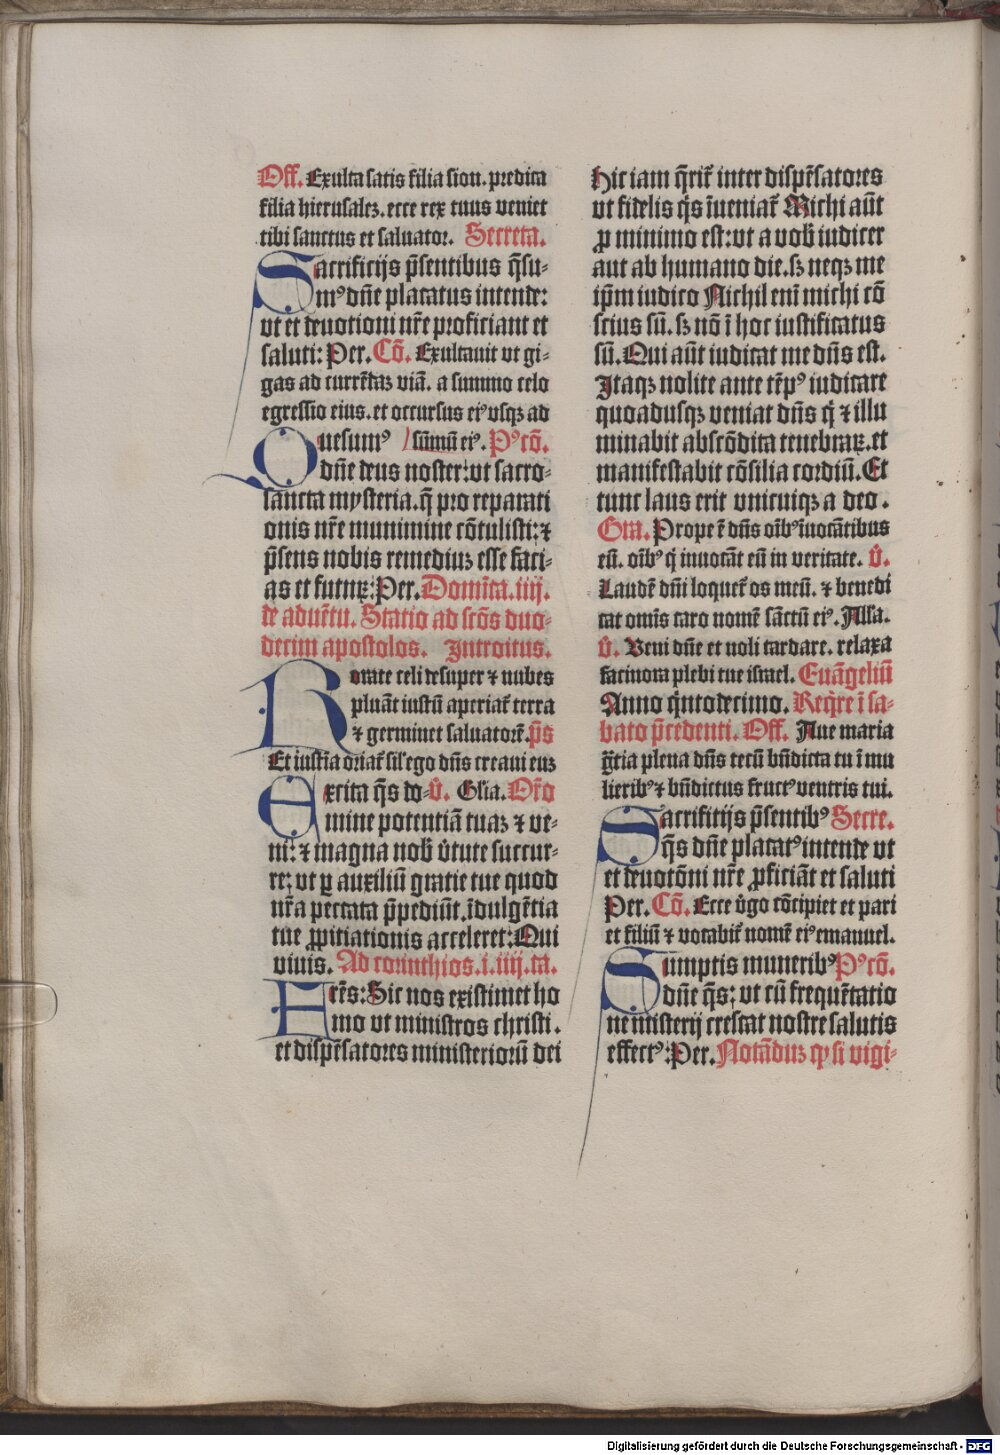 Off. Exulta satis filia sion. predica
filia hierusalez. ecce rex tuus veniet
tibi sanctus et saluator. Secreta.
Sacrificijs p̄sentibus q̄su-
mꝰ dn̄e placatus intende:
vt et deuotioni nr̄e proficiant et
saluti: Per. Cō. Exultauit vt gi-
gas ad currēdaz viā. a summo celo
egressio eius. et occursus eiꝰ vsqꝫ ad
Quesumꝰ sūmū eiꝰ. Pꝰcō.
dn̄e deus noster: vt sacro-
sancta mysteria. q̄ pro reparati
onis nr̄e munimine cōtulisti: ⁊
p̄sens nobis remediuz esse faci-
as et futuꝝ: Per. Domīca. iiij.
de aduētu. Statio ad scōs duo-
decim apostolos. Introitus.
Rorate celi desuper ⁊ nubes
pluāt iustū aperiat̄ terra
⁊ germinet saluatorē. p̄s
Et iusticia oriat̄ sil̄ ego dn̄s creaui euz
Excita q̄s do- v̄. Glia. Orō
mine potentiā tuaz ⁊ ve-
ni: ⁊ magna nob̄ v̄tute succur-
re: vt ꝑ auxiliū gratie tue quod
nr̄a peccata p̄pediūt. īdulgētia
tue ꝓpitiationis acceleret: Qui
viuis. Ad corinthios. i. iiij. ca.
Frēs: Sic nos existimet ho
mo vt ministros christi.
et dispēsatores ministeriorū dei
hic iam q̄rit̄ inter dispēsatores
vt fidelis q̄s īueniat̄ Michi aūt
ꝓ minimo est: vt a vob̄ iudicer
aut ab humano die. sꝫ neqꝫ me
ip̄m iudico Nichil enī michi cō
scius sū. sꝫ nō ī hoc iustificatus
sū. Qui aūt iudicat me dn̄s est.
Itaqꝫ nolite ante tēpꝰ iudicare
quoadusqꝫ veniat dn̄s q̄ ⁊ illu
minabit abscōdita tenebraꝝ. et
manifestabit cōsilia cordiū. Et
tunc laus erit vnicuiqꝫ a deo.
Gra. Prope ē dn̄s oībꝰ īuocātibus
eū. oībꝰ q̄ inuocāt eū in veritate. v̄.
Laudē dn̄i loquet̄ os meū. ⁊ benedi
cat omīs caro nomē sāctū eiꝰ. Alla.
v̄. Veni dn̄e et noli tardare. relaxa
facinora plebi tue israel. Euāgeliū
Anno q̄ntodecimo. Req̄re ī sa-
bato p̄cedenti. Off. Aue maria
gr̄tia plena dn̄s tecū bn̄dicta tu ī mu
lieribꝰ ⁊ bn̄dictus fructꝰ ventris tui.
Sacrificijs p̄sentibꝰ Secre.
q̄s dn̄e placatꝰ intende vt
et deuotōni nr̄e ꝓficiāt et saluti
Per. Cō. Ecce v̄go cōcipiet et pari
et filiū ⁊ vocabit̄ nomē eiꝰ emanuel.
Sumptis muneribꝰ Pꝰcō.
dn̄e q̄s: vt cū frequētatio
ne misterij crescat nostre salutis
effectꝰ: Per. Notāduz ꝙ si vigi-
Digitalisierung gefördert durch die Deutsche Forschungsgemeinschaft - DFG